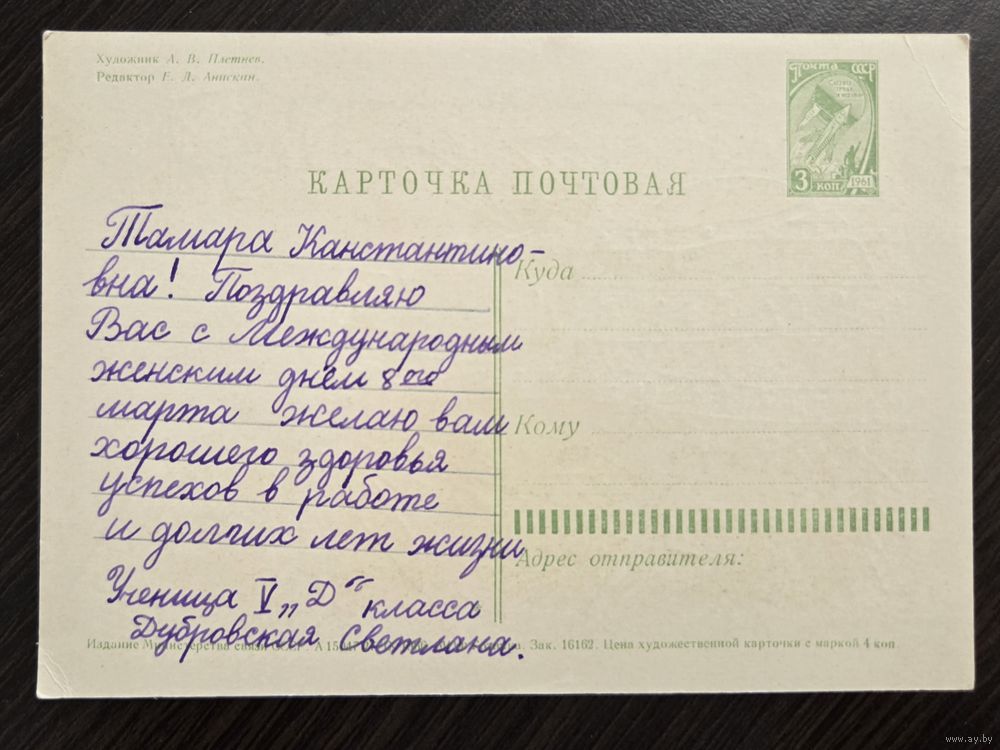 Художник А. В. Плетнев.
Редактор Е. Л. Анискин.
Почта СССР
3 коп
1961
КАРТОЧКА ПОЧТОВАЯ
Тамара Канстантино-
вна! Поздравляю
Вас с Международным
женским днём 8 ого
марта желаю вам
хорошего здоровья
успехов в работе
и долгих лет жизни
Ученица V „Д“ класса
Дубровская Светлана.
Куда
Кому
Адрес отправителя:
Издание Министерства связи СССР. Зак. 16162. Цена художественной карточки с маркой 4 коп
www.ay.by